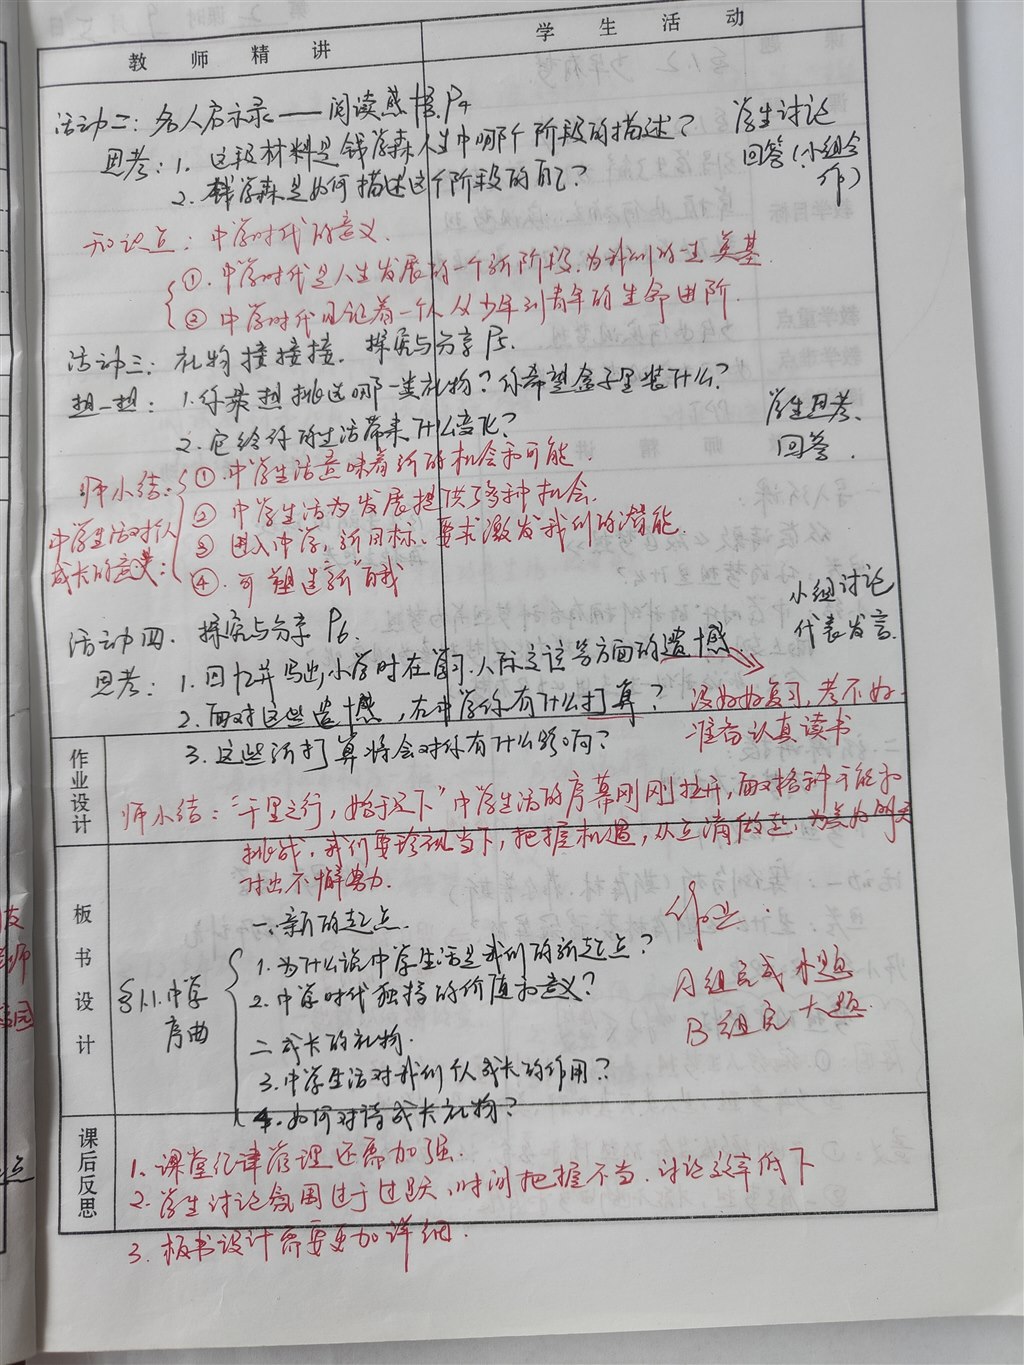 教师精讲
学生活动
活动二：名人启示录——阅读感悟P4
思考：1. 这段材料是钱学森人生中哪个阶段的描述？
2. 钱学森是如何描述这个阶段的自己？
学生讨论
回答（小组合
作）
知识点：中学时代的意义.
①. 中学时代是人生发展的一个新阶段，为我们的一生奠基.
② 中学时代见证着一个人从少年到青年的生命进阶.
活动三：礼物接接接. 探究与分享P5.
想一想：1. 你最想挑选哪一类礼物？你希望盒子里装什么？
2. 它给你的生活带来什么变化？
学生思考.
回答.
师小结：
中学生活对个人
成长的意义：
①. 中学生活意味着新的机会和可能.
② 中学生活为发展提供了多种机会.
③ 进入中学，新目标、要求激发我们的潜能.
④. 可塑造“新”自我
活动四. 探究与分享P6.
思考：1. 回忆并写出小学时在学习、人际交往等方面的遗憾
2. 面对这些遗憾，在中学你有什么打算？
3. 这些新打算将会对你有什么影响？
小组讨论
代表发言.
没好好复习，考不好
准备认真读书
作业设计
师小结：“千里之行，始于足下”中学生活的序幕刚刚拉开，面对各种可能和
挑战，我们要珍视当下，把握机遇，从点滴做起，为美好明天
付出不懈努力.
板书设计
§1.1.中学
序曲
一. 新的起点.
1. 为什么说中学生活是我们的新起点？
2. 中学时代独特的价值和意义？
二 成长的礼物.
3. 中学生活对我们个人成长的作用？
4. 如何对待成长礼物？
作业：
A组完成小题
B组完大题.
课后反思
1. 课堂纪律管理还需加强.
2. 学生讨论氛围过于过跃，时间把握不当. 讨论效率低下
3. 板书设计需要更加详细.